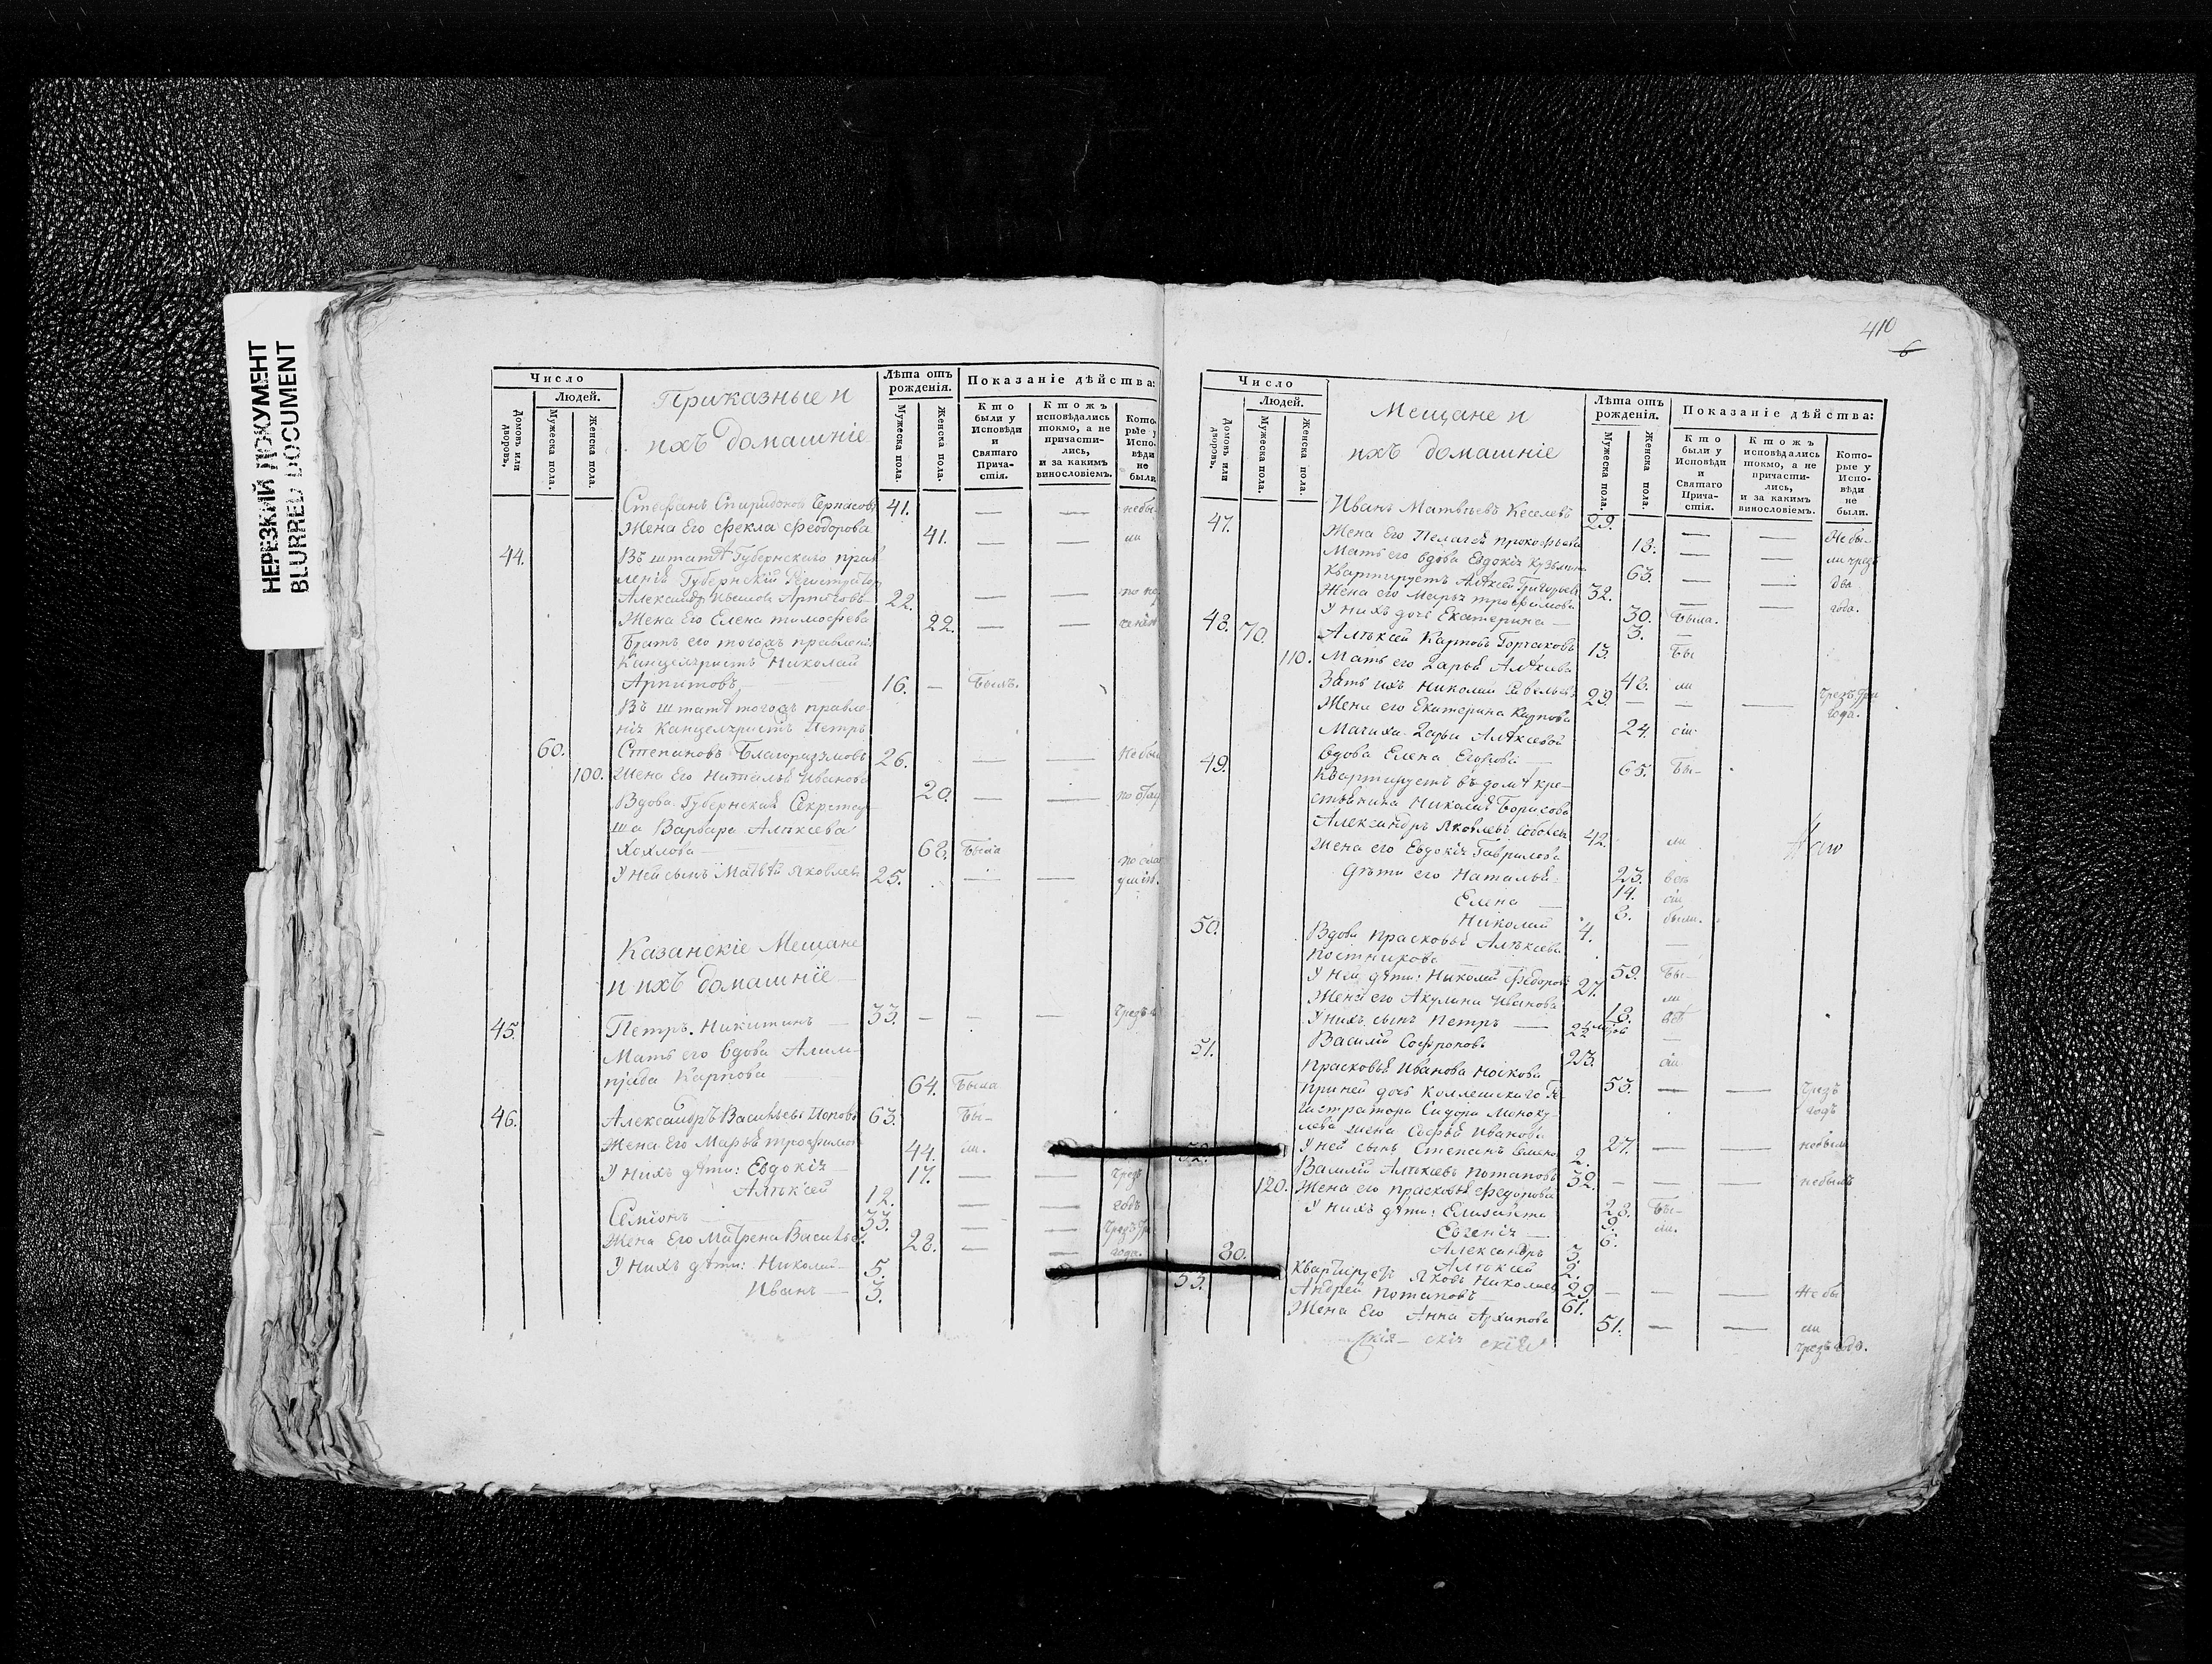 НЕРЕЗКИЙ ДОКУМЕНТ
BLURRED DOCUMENT
Число
Людей.
Домовъ или дворовъ.
Мужеска пола.
Женска пола.
Приказные и
ихъ домашніе
Лѣта отъ рожденія.
Мужеска пола.
Женска пола.
Показаніе дѣйства:
Кто были у Исповѣди и Святаго Прича-стія.
Ктожъ исповѣдались токмо, а не причасти-лись, и за какимъ винословіемъ.
Кото-рые у Испо-вѣди не были
Стефанъ Спиридонов 41. — — небы-
Жена Его Фекла Феодорова 41. — — ли
44. Въ штатѣ Губернскаго прав
леніе Губернскій Регистраторъ
Александръ Ивановъ 22. — —
Жена Его Елена тимофеева 22. — —
Братъ его тогожъ правленія
Канцеляристъ Николай
16. — Былъ.
Въ штатѣ тогожъ правле-
нія Канцеляристъ Петръ
60. Степановъ Благоразумовъ 26. — — Небыл
100. Жена Его Наталья Иванова 20. — —
Вдова Губернская Секретар
ша Варвара Алѣксеева
Хохлова 68. Была
У ней сынъ Матвѣй Яковлевъ 25. — —
Казанскіе Мещане
и ихъ домашніе
45. Петръ Никитинъ — 33. — — — Чрезъ
Мать его вдова Алим-
піада Карпова 64. Была
46. Александръ Васильевъ 63. Бы-
Жена Его Марья трофимов 44. ли.
У нихъ дѣти: Евдокія 17. — — Чрезъ
Алѣксей 12. — — годъ
Семіонъ 33. — — Чрезъ три
Жена Его Матрена Васильев. 28. — — года.
У нихъ дѣти: Николай 5.
Иванъ — 3.
410
6
Число
Людей.
Домовъ или дворовъ.
Мужеска пола.
Женска пола.
Мещане и
ихъ домашніе
Лѣта отъ рожденія.
Мужеска пола.
Женска пола.
Показаніе дѣйства:
Кто были у Исповѣди и Святаго Прича-стія.
Ктожъ исповѣдались токмо, а не причасти-лись, и за какимъ винословіемъ.
Кото-рые у Испо-вѣди не были.
47. Иванъ Матвѣевъ Киселевъ 29. Небы-
Жена Его Пелагея прокофьева 18. — — ли чрезъ
Мать его вдова Евдокія Кузьмина 63. — — два
Квартируетъ Алѣксей Григорьевъ 32. — — года.
Жена его Марья трофимова 30. Была.
48. У нихъ дочь Екатерина — 3. —
70. Алѣксей Карповъ Горчаковъ 13. Бы
110. Мать его Дарья Алѣксеева 48. ли
Зать ихъ Николай 29. — — — Чрезъ три
Жена его Екатерина Карпова 24. года.
Мачиха Дарьи Алѣксеевой
49. вдова Елена Егорова — 65. Бы-
Квартируетъ въ домѣ кре-
стьянина Николая Борисова
Александръ Яковлевъ 42. ли
Жена его Евдокія Гаврилова 23. всѣ
Дѣти его Наталья 14.
Елена — 8. были.
Николай 4. —
50. Вдова Прасковья Алѣксеева
Постникова 59. Бы-
У ней дѣти: Николай Федоровъ 27. ли
Жена его Акулина Иванова 18. всѣ
У нихъ сынъ Петръ —
51. Василій Софроновъ 23.
Прасковья Иванова Носкова 53. — — чрезъ
При ней дочь коллежскаго Ре- годъ
гистратора Сидора
жена Софья Иванова 27. — — небыла
У ней сынъ Степанъ 2.
52. Василій Алѣксеевъ Потаповъ 32. — — — небылъ
120. Жена его прасковья Федорова 28. Бы-
У нихъ дѣти: Елизавета 9. ли.
Евгенія — 6.
Александръ 3.
80. Алѣксей 2.
Квартируетъ Яковъ Николаев 29. — — — Небы
53. Андрей Потаповъ 61.
Жена Его Анна Архипова 51. — — ли
чрезъ годъ.